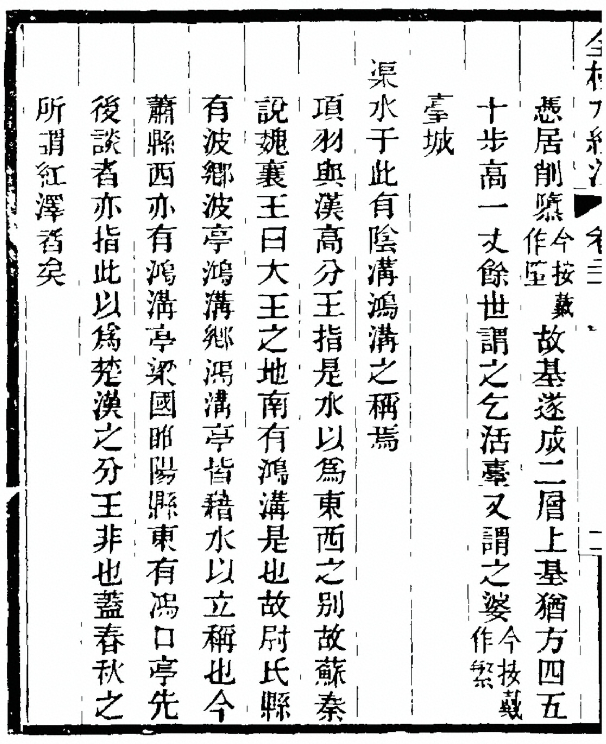 全校水經注 卷二
憑居削墮今按戴作墜故基遂成二層上基猶方四五
十步高一丈餘世謂之乞活臺又謂之婆今按戴作繁
臺城
渠水于此有陰溝鴻溝之稱焉
項羽與漢高分王指是水以爲東西之别故蘇秦
說魏襄王曰大王之地南有鴻溝是也故尉氏縣
有波鄉波亭鴻溝鄉鴻溝亭皆藉水以立稱也今
蕭縣西亦有鴻溝亭梁國睢陽縣東有鴻口亭先
後談者亦指此以爲楚漢之分王非也蓋春秋之
所謂紅澤者矣